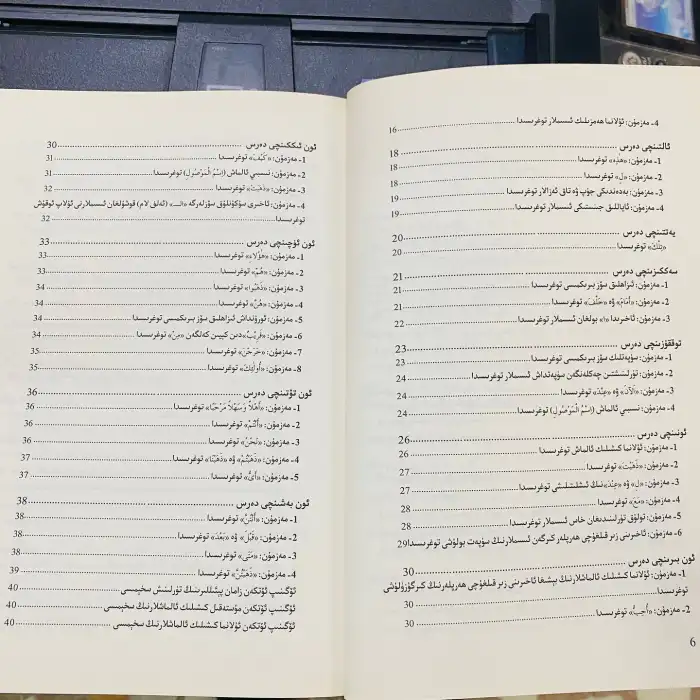 4- مەزمۇن: ئۇلانما ھەمزىلىك ئىسىملار توغرىسىدا 16
ئالتىنچى دەرس 18
1- مەزمۇن: «هَذِهِ» توغرىسىدا 18
2- مەزمۇن: «لِـ» توغرىسىدا 18
3- مەزمۇن: بەدەندىكى جۈپ ۋە تاق ئەزالار توغرىسىدا 19
4- مەزمۇن: ئاياللىق جىنىستىكى ئىسىملار توغرىسىدا 19
يەتتىنچى دەرس 20
«تِلْكَ» توغرىسىدا 20
سەككىزىنچى دەرس 21
1- مەزمۇن: ئىزاھلىق سۆز بىرىكمىسى توغرىسىدا 21
2- مەزمۇن: «أَمَامَ» ۋە «خَلْفَ» توغرىسىدا 21
3- مەزمۇن: ئاخىرىدا «ا» بولغان ئىسىملار توغرىسىدا 22
توققۇزىنچى دەرس 23
1- مەزمۇن: سۈپەتلىك سۆز بىرىكمىسى توغرىسىدا 23
2- مەزمۇن: تۈرلىنىشتىن چەكلەنگەن سۈپەتداش ئىسىملار توغرىسىدا 24
3- مەزمۇن: «اَلْآنَ» ۋە «عِنْدَ» توغرىسىدا 24
4- مەزمۇن: نىسبىي ئالماش (اِسْمُ الْمَوْصُولِ) توغرىسىدا 24
ئونىنچى دەرس 26
1- مەزمۇن: ئۇلانما كىشىلىك ئالماش توغرىسىدا 26
2- مەزمۇن: «ذَهَبْتَ» توغرىسىدا 27
3- مەزمۇن: «لِ» ۋە «عِنْدَ»نىڭ ئىشلىتىلىشى توغرىسىدا 27
4- مەزمۇن: «مَعَ» توغرىسىدا 28
5- مەزمۇن: تولۇق تۈرلىنىدىغان خاس ئىسىملار توغرىسىدا 28
6- مەزمۇن: ئاخىرىنى زىر قىلغۇچى ھەرپلەر كىرگەن ئىسىملارنىڭ سۈپەت بولۇشى توغرىسىدا 29
ئون بىرىنچى دەرس 30
1- مەزمۇن: ئۇلانما كىشىلىك ئالماشلارنىڭ بېشىغا ئاخىرىنى زىر قىلغۇچى ھەرپلەرنىڭ كىرگۈزۈلۈشى
توغرىسىدا 30
2- مەزمۇن: «أُحِبُّ» توغرىسىدا 30
6
ئون ئىككىنچى دەرس 30
1- مەزمۇن: «كَيْفَ» توغرىسىدا 31
2- مەزمۇن: نىسبىي ئالماش (اِسْمُ الْمَوْصُولِ) توغرىسىدا 31
3- مەزمۇن: «ذَهَبَتْ» توغرىسىدا 32
4- مەزمۇن: ئاخىرى سۇكۇنلۇق سۆزلەرگە «الـ» (ئەلق لام) قوشۇلغان ئىسىملارنى ئۇلاپ ئوقۇش
توغرىسىدا 32
ئون ئۈچىنچى دەرس 33
1- مەزمۇن: «هَؤُلَاءِ» توغرىسىدا 33
2- مەزمۇن: «هُمْ» توغرىسىدا 33
3- مەزمۇن: «ذَهَبُوا» توغرىسىدا 34
4- مەزمۇن: «هُنَّ» توغرىسىدا 34
5- مەزمۇن: ئورۇنداش ئىزاھلىق سۆز بىرىكمىسى توغرىسىدا 34
6- مەزمۇن: «قَرِيبٌ»دىن كېيىن كەلگەن «مِنْ» توغرىسىدا 34
7- مەزمۇن: «خَرَجْنَ» توغرىسىدا 35
8- مەزمۇن: «أُولَئِكَ» توغرىسىدا 35
ئون تۆتىنچى دەرس 36
1- مەزمۇن: «أَهْلًا وَسَهْلًا مَرْحَبًا» توغرىسىدا 36
2- مەزمۇن: «أَنْتُمْ» توغرىسىدا 36
3- مەزمۇن: «نَحْنُ» توغرىسىدا 36
4- مەزمۇن: «ذَهَبْتُمْ» ۋە «ذَهَبْنَا» توغرىسىدا 37
5- مەزمۇن: «أَيُّ» توغرىسىدا 37
ئون بەشىنچى دەرس 38
1- مەزمۇن: «أَنْتُنَّ» توغرىسىدا 38
2- مەزمۇن: «قَبْلَ» ۋە «بَعْدَ» توغرىسىدا 38
3- مەزمۇن: «مَتَى» توغرىسىدا 38
4- مەزمۇن: «ذَهَبْتُنَّ» توغرىسىدا 39
ئۆگىنىپ ئۆتكەن زامان پېئىللىرىنىڭ تۈرلىنىش سخېمىسى 40
ئۆگىنىپ ئۆتكەن مۇستەقىل كىشىلىك ئالماشلارنىڭ سخېمىسى 40
ئۆگىنىپ ئۆتكەن ئۇلانما كىشىلىك ئالماشلارنىڭ سخېمىسى 40